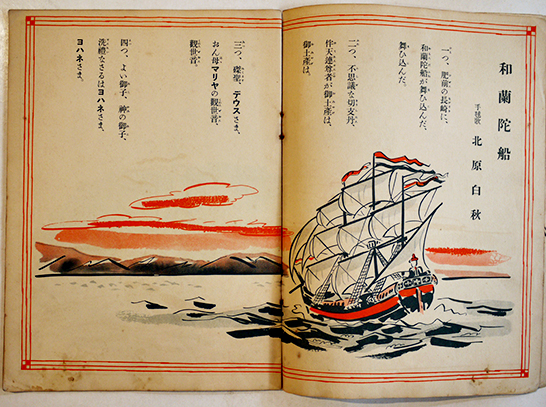 和蘭陀船
手毬歌
北原白秋
一つ、肥前の長崎に、
和蘭陀船が舞ひ込んだ、
舞ひ込んだ。
二つ、不思議な切支丹、
伴天連尊者が御土産は、
御土産は。
三つ、磔聖、デウスさま、
おん母マリヤの観世音、
観世音。
四つ、よい御子、神の御子、
洗禮なさるはヨハネさま、
ヨハネさま。